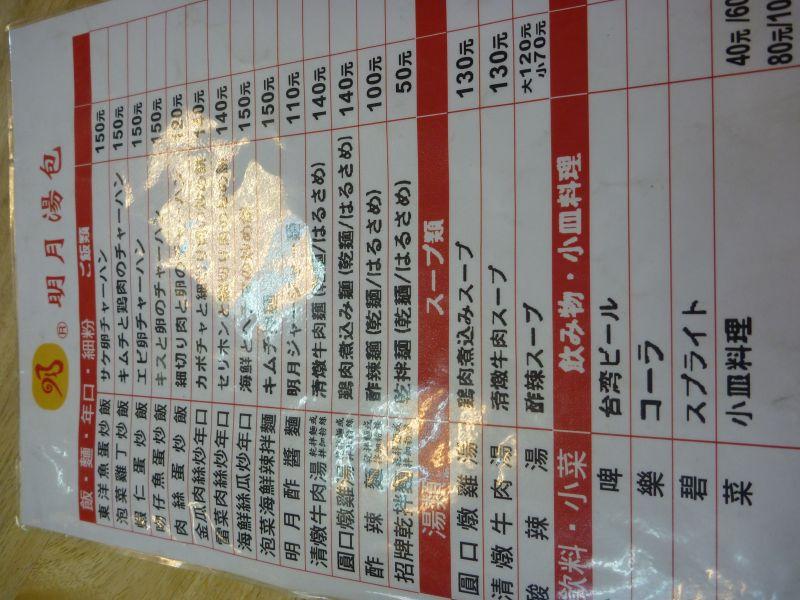 明月湯包
飯・麵・年口・細粉 ご飯類
東洋魚蛋炒飯 サケ卵チャーハン 150元
泡菜雞丁炒飯 キムチと鶏肉のチャーハン 150元
蝦仁蛋炒飯 エビ卵チャーハン 150元
吻仔魚蛋炒飯 キスと卵のチャーハン 150元
肉絲蛋炒飯 細切り肉と卵の 120元
金瓜肉絲炒年口 カボチャと細 140元
雪菜肉絲炒年口 セリホンと 140元
海鮮絲瓜炒年口 海鮮と 150元
泡菜海鮮辣拌麵 キムチ 150元
明月酢醬麵 明月ジャー 110元
清燉牛肉湯 清燉牛肉麺(乾麺/はるさめ) 140元
圓口燉雞湯 鶏肉煮込み麺(乾麺/はるさめ) 140元
酢辣 酢辣麺(乾麺/はるさめ) 100元
招牌乾拌麵 乾拌麺(乾麺/はるさめ) 50元
湯類 スープ類
圓口燉雞湯 鶏肉煮込みスープ 130元
清燉牛肉湯 清燉牛肉スープ 130元
酸辣湯 酢辣スープ 大120元 小70元
飲料・小菜 飲み物・小皿料理
啤 台湾ビール
樂 コーラ
碧 スプライト 40元/60
菜 小皿料理 80元/10